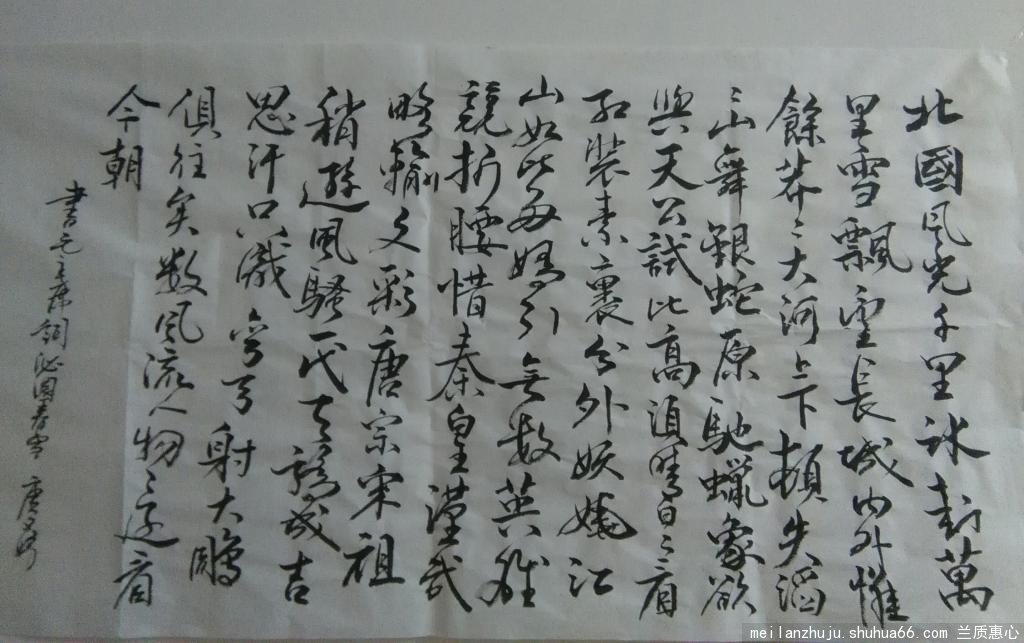 北國風光千里冰封萬
里雪飄望長城內外惟
餘莽〻大河上下頓失滔
〻山舞銀蛇原馳蠟象欲
與天公試比高須晴日〻看
紅裝素裹分外妖嬈江
山如此多嬌引無數英雄
競折腰惜秦皇漢武
略輸文彩唐宗宋祖
稍遜風騷一代天驕成吉
思汗只識彎弓射大鵰
俱往矣數風流人物〻還看
今朝
書毛主席詞沁園春雪 唐
meilanzhuju.shuhua66.com 兰质惠心